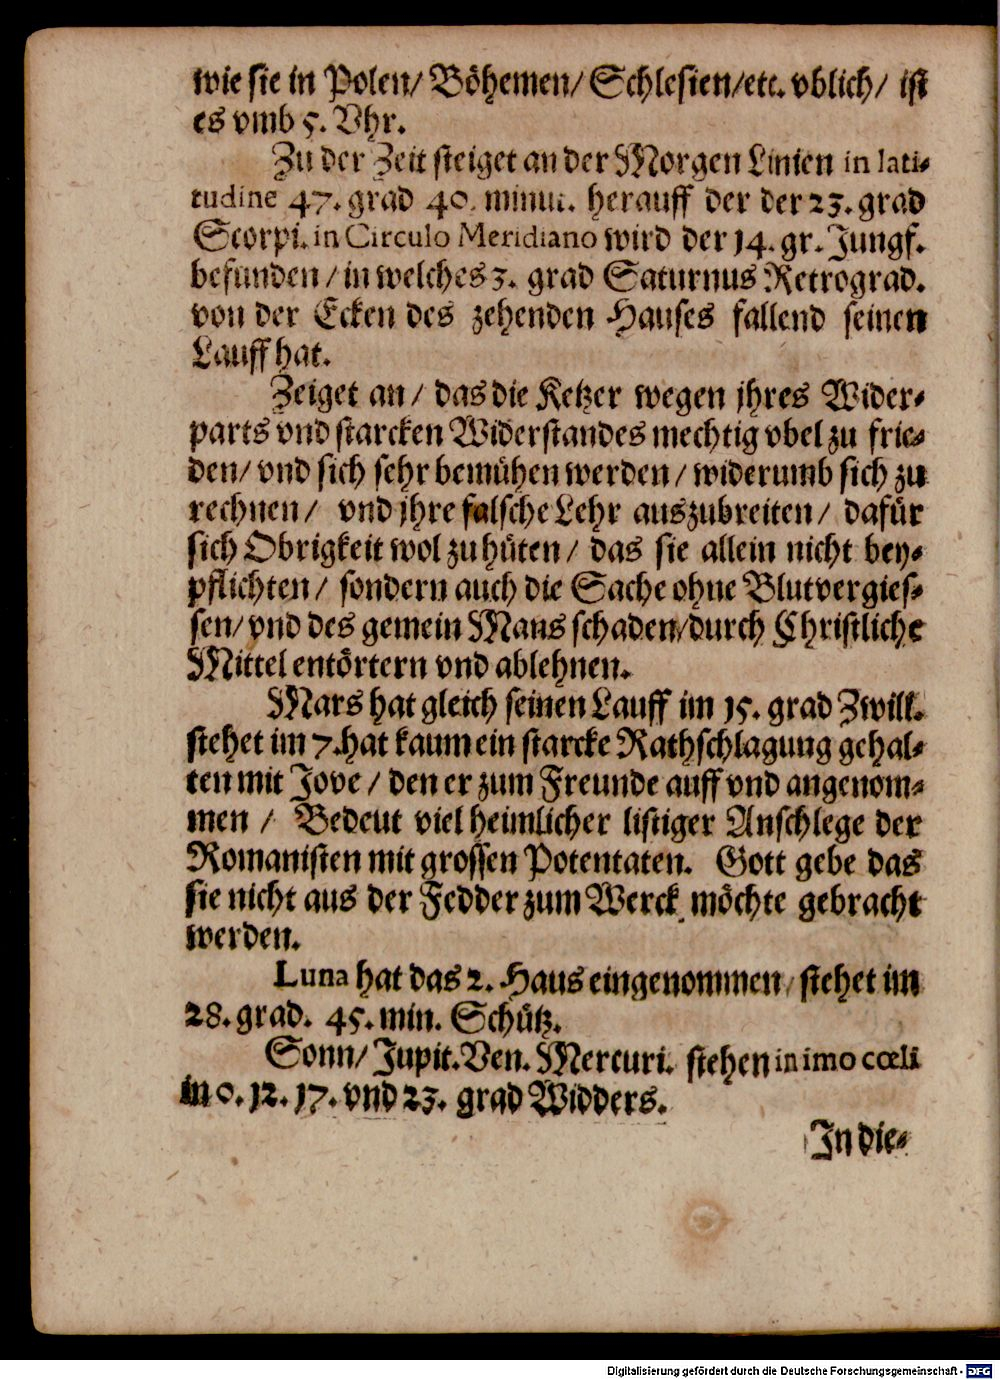 wie sie in Polen/ Böhemen/ Schlesien/etc. vblich/ ist
es vmb 5. Vhr.
Zu der Zeit steiget an der Morgen Linien in lati-
tudine 47. grad 40. minut. herauff der der 23. grad
Scorpi. in Circulo Meridiano wird der 14. gr. Jungf.
befunden / in welches 3. grad Saturnus Retrograd.
von der Ecken des zehenden Hauses fallend seinen
Lauff hat.
Zeiget an / das die Ketzer wegen jhres Wider-
parts vnd starcken Widerstandes mechtig vbel zu frie-
den/ vnd sich sehr bemühen werden / widerumb sich zu
rechnen / vnd jhre falsche Lehr auszubreiten / dafür
sich Obrigkeit wol zu hüten / das sie allein nicht bey-
pflichten / sondern auch die Sache ohne Blutvergies-
sen/ vnd des gemein Mans schaden/durch Christliche
Mittel entörtern vnd ablehnen.
Mars hat gleich seinen Lauff im 15. grad Zwill.
stehet im 7.hat kaum ein starcke Rathschlagung gehal-
ten mit Jove / den er zum Freunde auff vnd angenom-
men / Bedeut viel heimlicher listiger Anschlege der
Romanisten mit grossen Potentaten. Gott gebe das
sie nicht aus der Fedder zum Werck möchte gebracht
werden.
Luna hat das 2. Haus eingenommen / stehet im
28. grad. 45. min. Schütz.
Sonn/ Jupit. Ven. Mercuri. stehen in imo cœli
in 0. 12. 17. vnd 23. grad Widders.
In die-
Digitalisierung gefördert durch die Deutsche Forschungsgemeinschaft - DFG